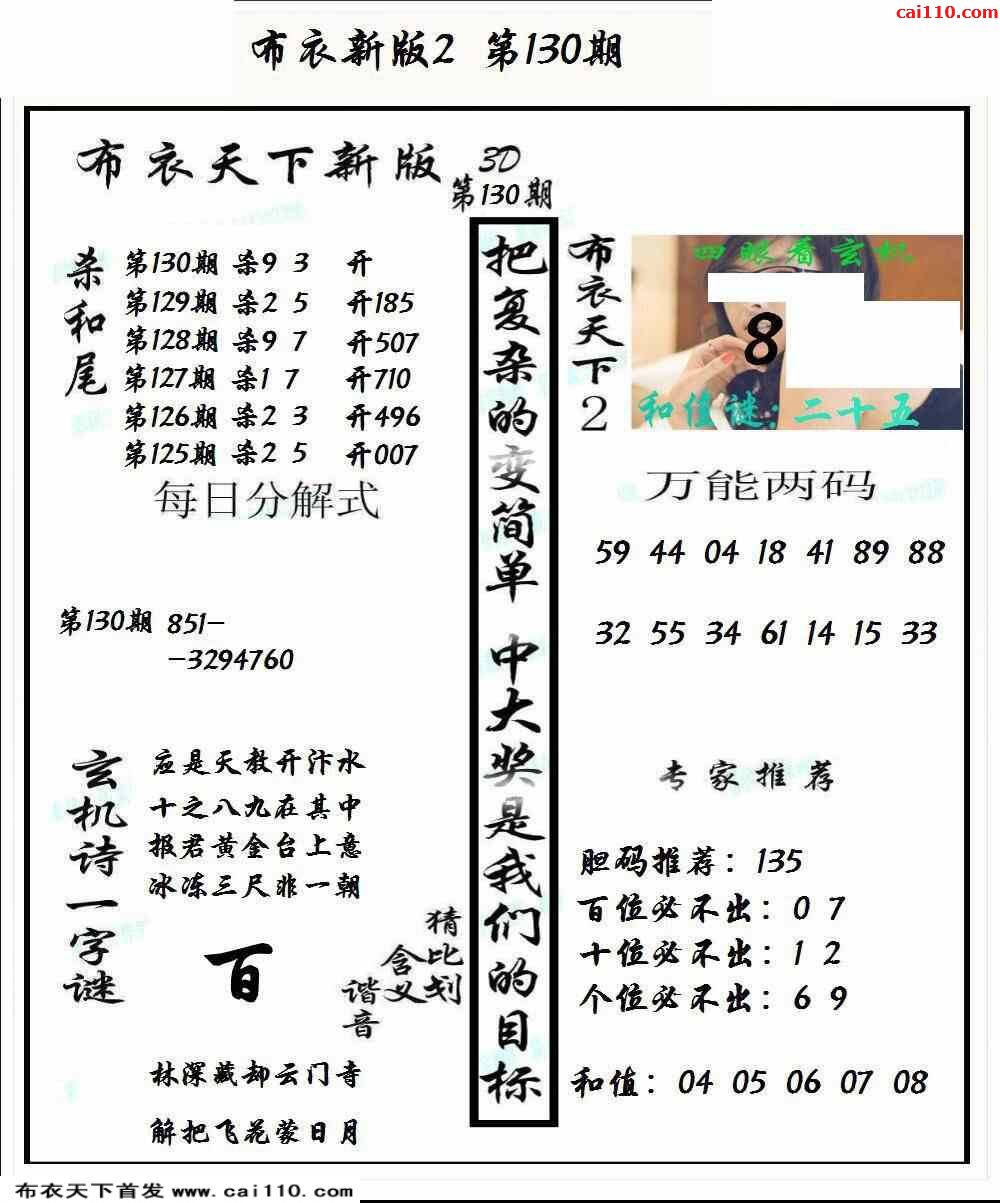 cai110.com
布衣新版2 第130期
布衣天下新版
3D
第130期
杀和尾
第130期 杀9 3 开
第129期 杀2 5 开185
第128期 杀9 7 开507
第127期 杀1 7 开710
第126期 杀2 3 开496
第125期 杀2 5 开007
每日分解式
第130期 851-
-3294760
玄机诗一字谜
应是天教开汴水
十之八九在其中
报君黄金台上意
冰冻三尺非一朝
百
猜比划
含义
谐音
林深藏却云门寺
解把飞花蒙日月
把复杂的变简单 中大奖是我们的目标
布衣天下2
四眼看玄机
8
和值谜:二十五
万能两码
59 44 04 18 41 89 88
32 55 34 61 14 15 33
专家推荐
胆码推荐：135
百位必不出：0 7
十位必不出：1 2
个位必不出：6 9
和值：04 05 06 07 08
布衣天下首发 www.cai110.com